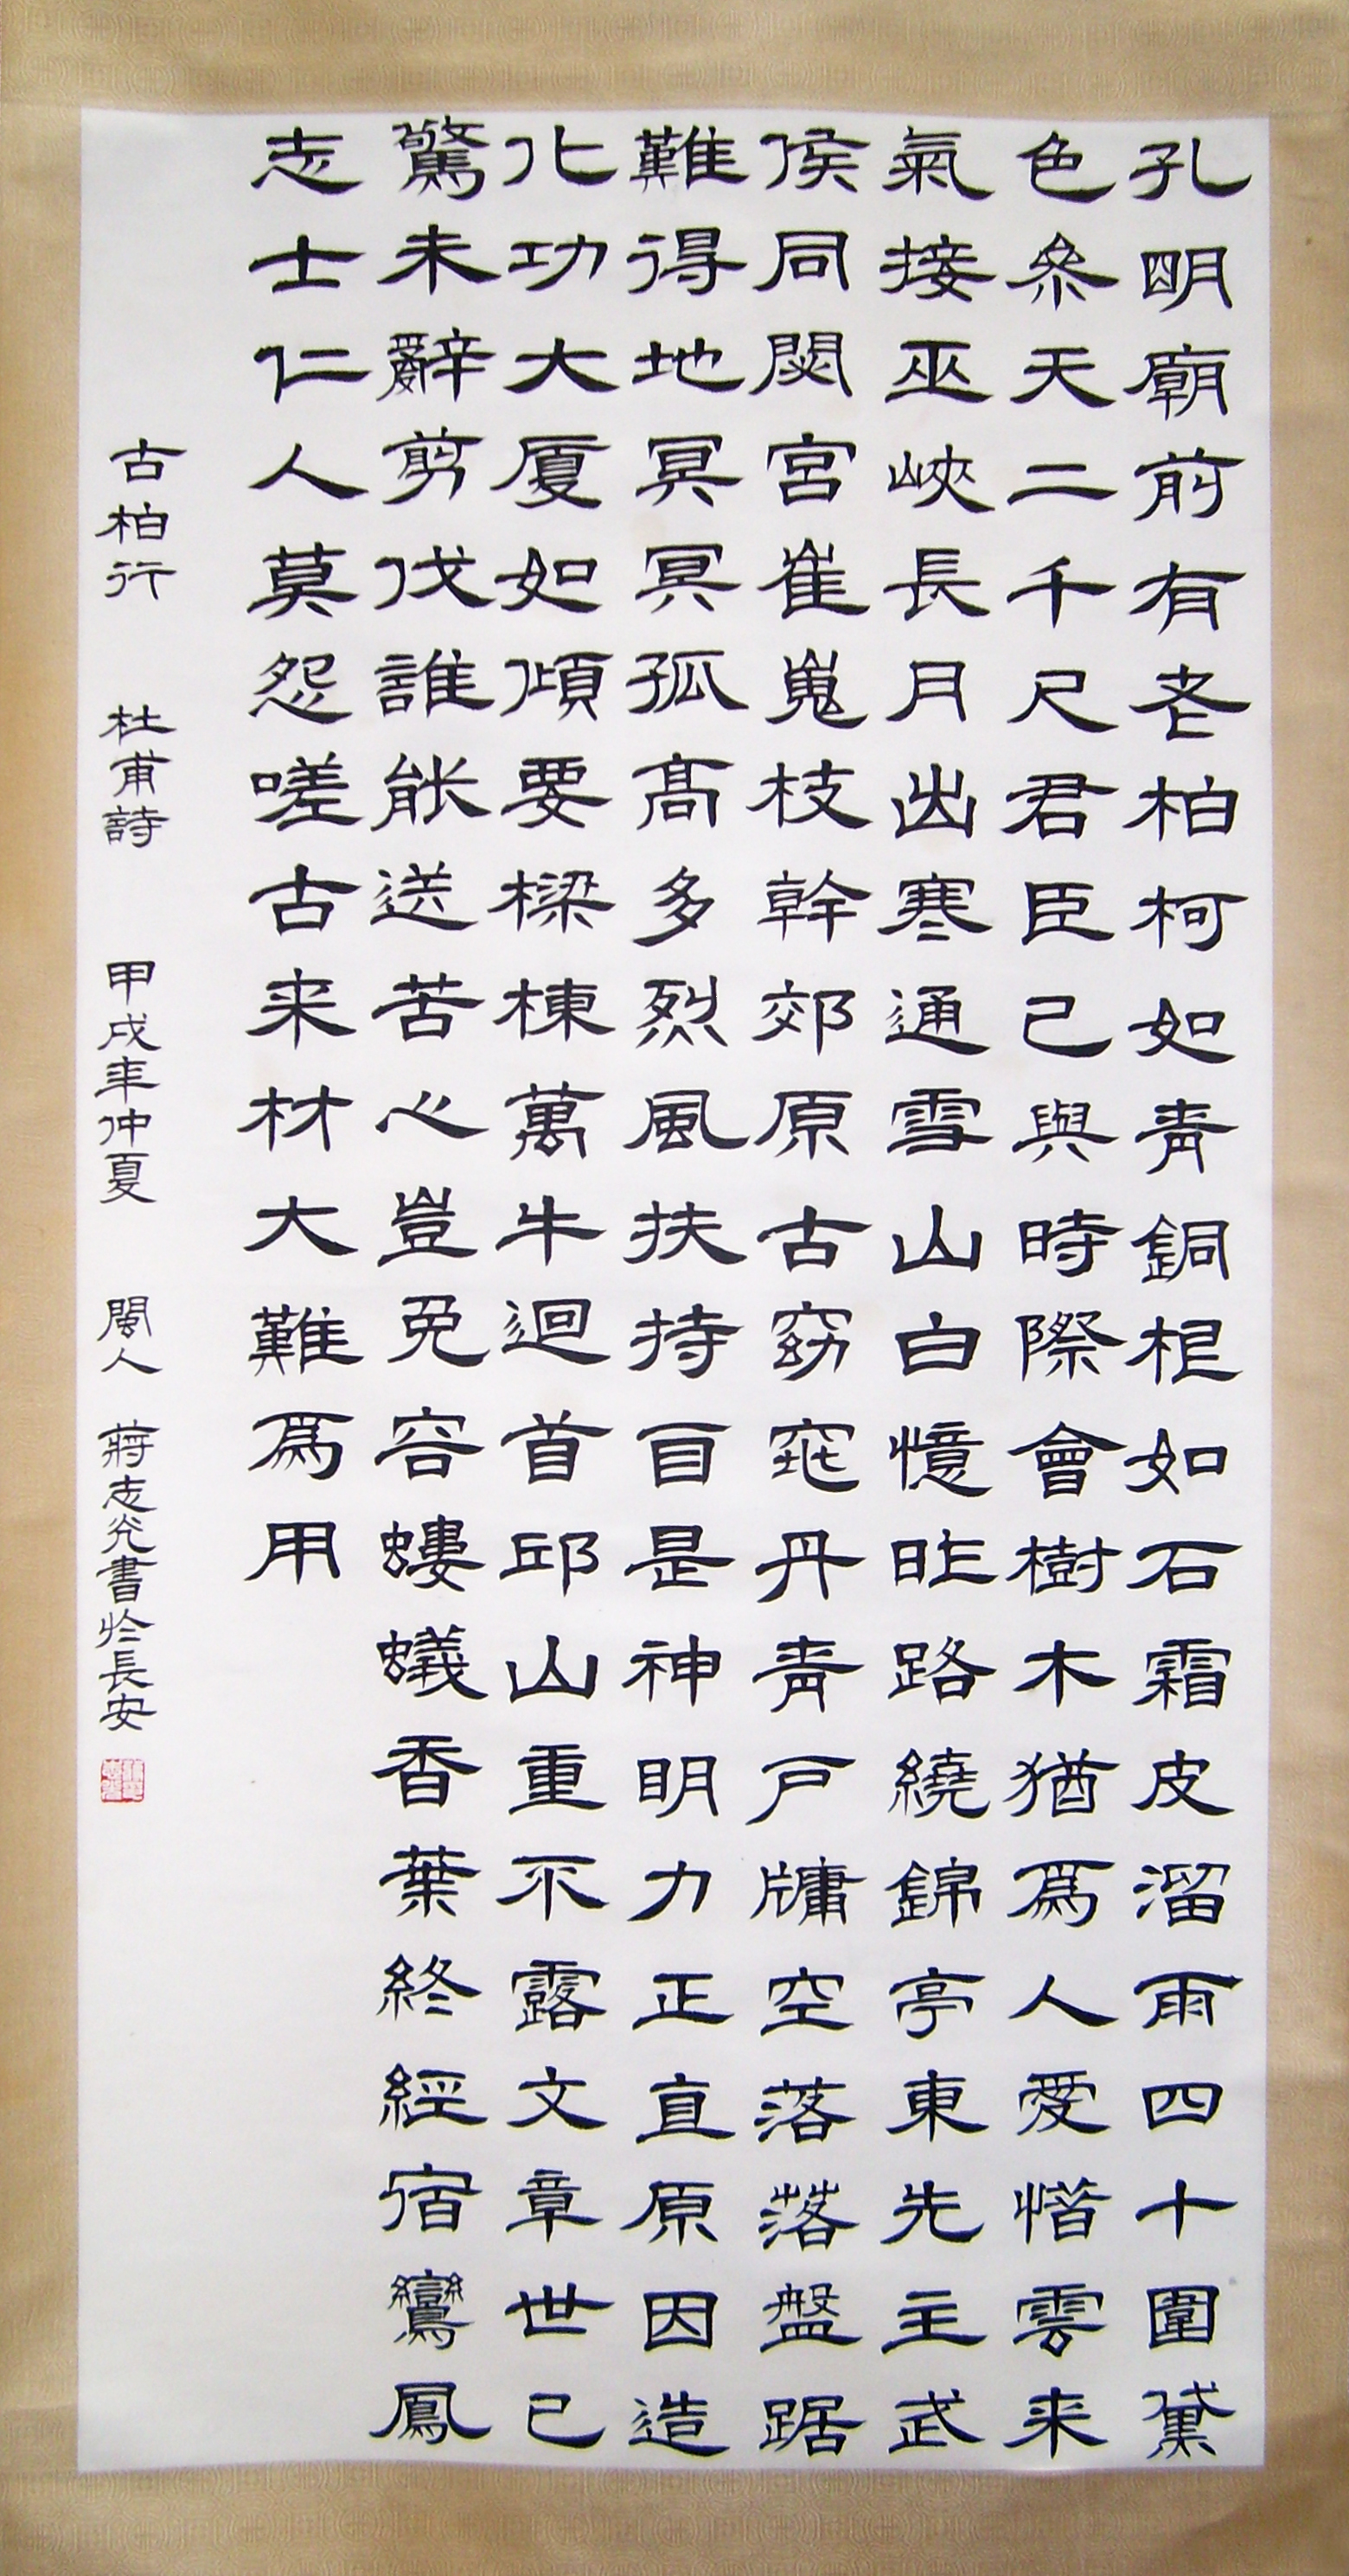 孔明廟前有老柏柯如青銅根如石霜皮溜雨四十圍黛
色參天二千尺君臣已與時際會樹木猶為人愛惜雲来
氣接巫峽長月出寒通雪山白憶昨路繞錦亭東先主武
侯同閟宮崔嵬枝幹郊原古窈窕丹青戶牖空落落盤踞
難得地冥冥孤高多烈風扶持自是神明力正直原因造
化功大厦如傾要樑棟萬牛迴首邱山重不露文章世已
驚未辭剪伐誰能送苦心豈免容螻蟻香葉終經宿鸞鳳
志士仁人莫怨嗟古来材大難為用
古柏行 杜甫詩 甲戌年仲夏 閩人 蔣志光書於長安